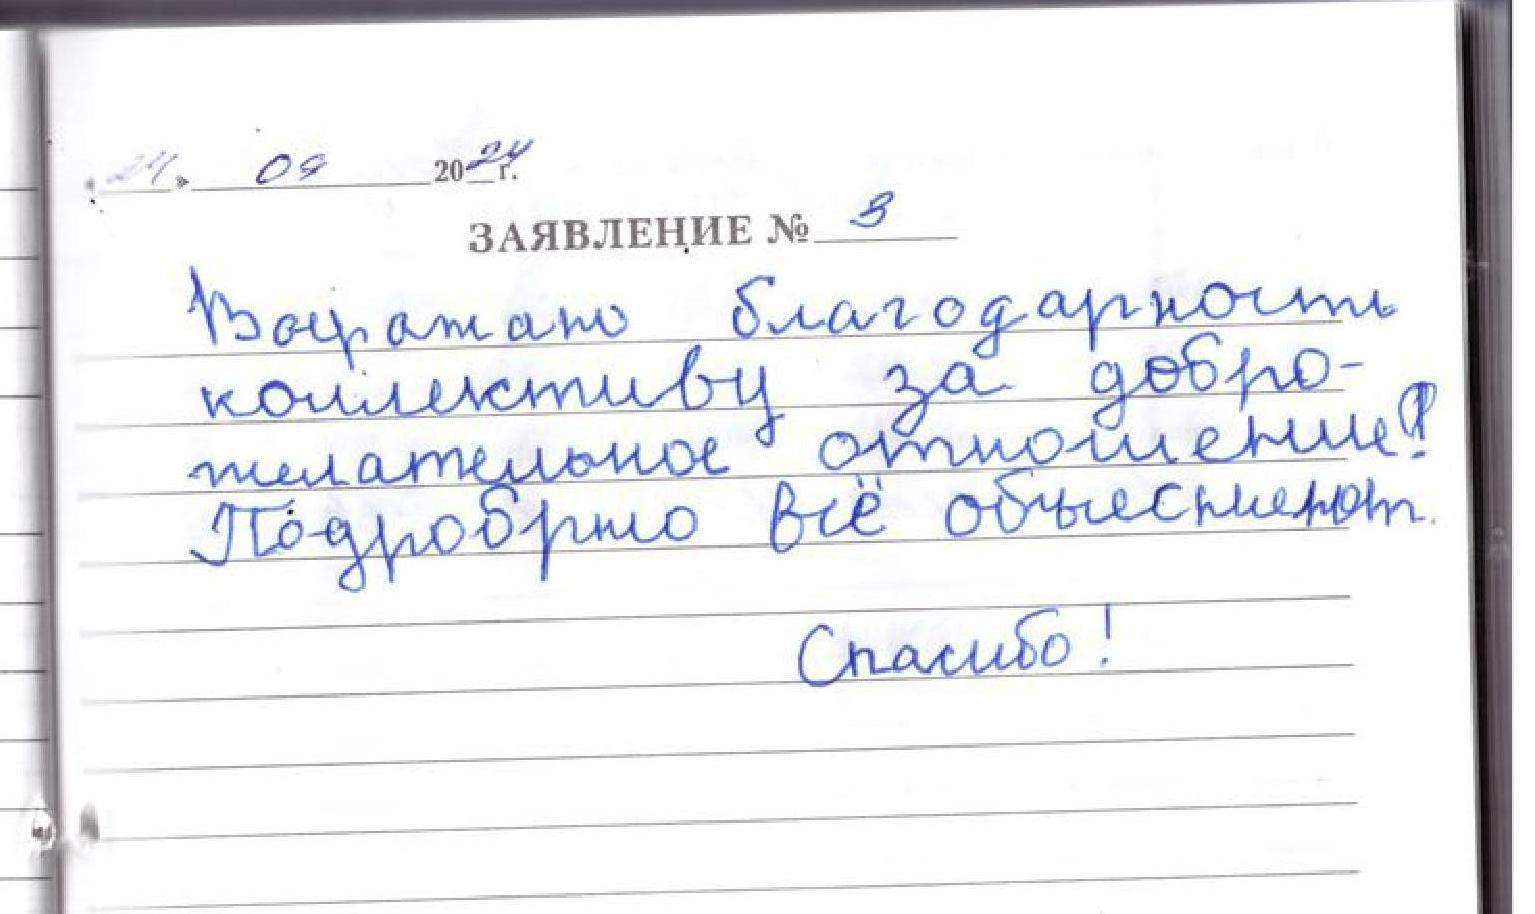 «24» 09 2024 г.
ЗАЯВЛЕНИЕ № 3
Выражаю благодарность
коллективу за добро-
желательное отношение!
Подробрно всё объесняют.
Спасибо!